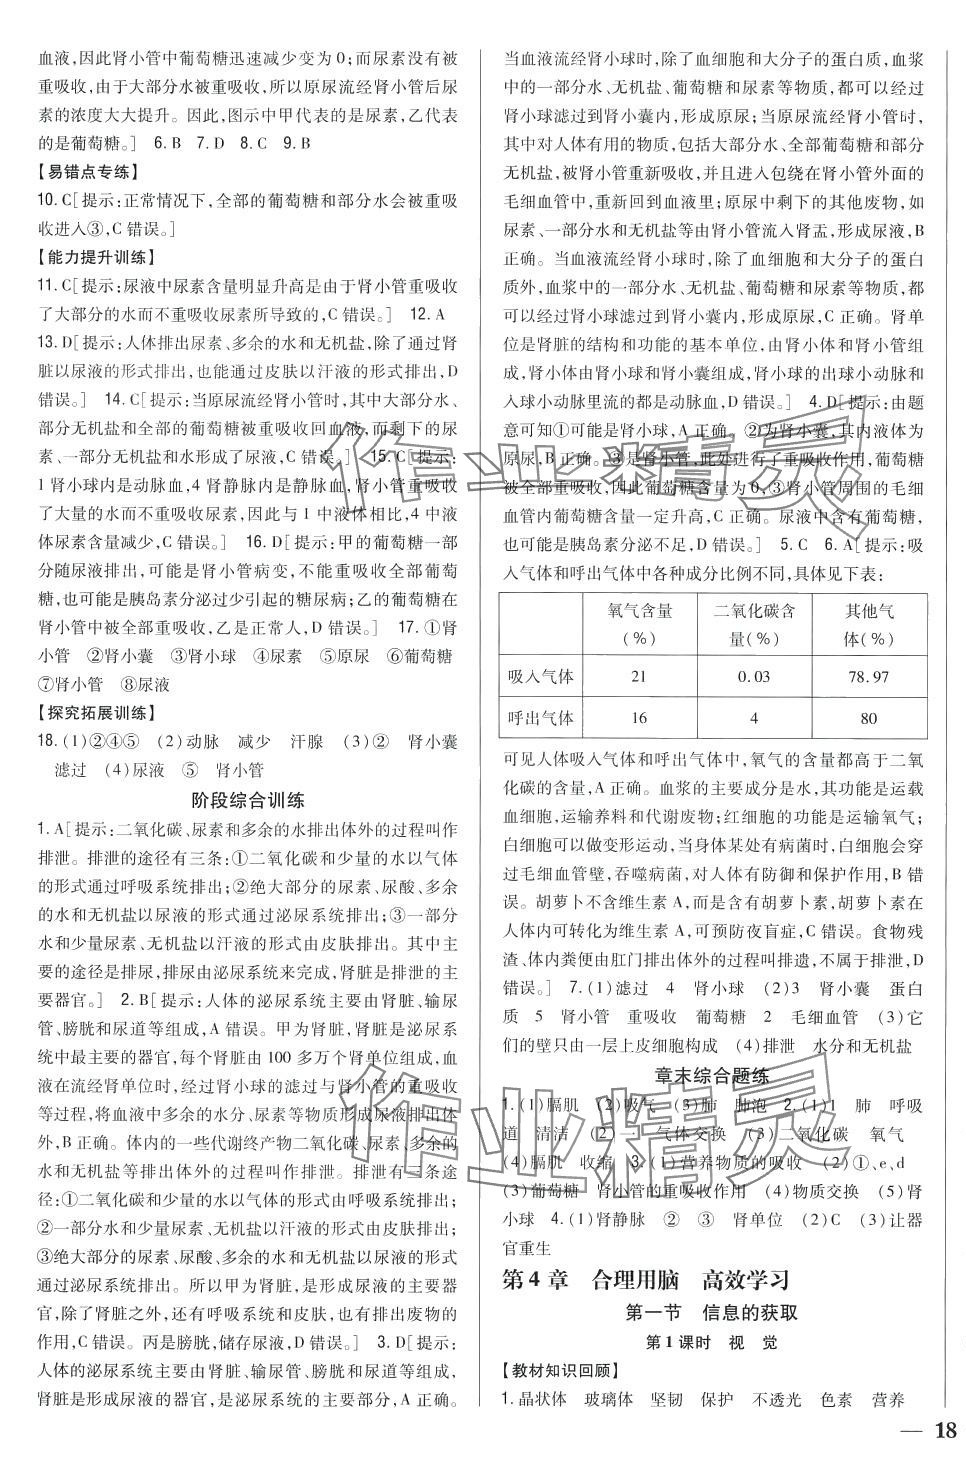 血液,因此肾小管中葡萄糖迅速减少变为0;而尿素没有被
重吸收,由于大部分水被重吸收,所以原尿流经肾小管后尿
素的浓度大大提升。因此,图示中甲代表的是尿素,乙代表
的是葡萄糖。] 6. B 7. D 8. C 9. B
【易错点专练】
10. C[提示:正常情况下,全部的葡萄糖和部分水会被重吸
收进入③,C错误。]
【能力提升训练】
11. C[提示:尿液中尿素含量明显升高是由于肾小管重吸收
了大部分的水而不重吸收尿素所导致的,C错误。] 12. A
13. D[提示:人体排出尿素、多余的水和无机盐,除了通过肾
脏以尿液的形式排出,也能通过皮肤以汗液的形式排出,D
错误。] 14. C[提示:当原尿流经肾小管时,其中大部分水、
部分无机盐和全部的葡萄糖被重吸收回血液,而剩下的尿
素、一部分无机盐和水形成了尿液,C错误。] 15. C[提示:
1肾小球内是动脉血,4肾静脉内是静脉血,肾小管重吸收
了大量的水而不重吸收尿素,因此与1中液体相比,4中液
体尿素含量减少,C错误。] 16. D[提示:甲的葡萄糖一部
分随尿液排出,可能是肾小管病变,不能重吸收全部葡萄
糖,也可能是胰岛素分泌过少引起的糖尿病;乙的葡萄糖在
肾小管中被全部重吸收,乙是正常人,D错误。] 17. ①肾
小管 ②肾小囊 ③肾小球 ④尿素 ⑤原尿 ⑥葡萄糖
⑦肾小管 ⑧尿液
【探究拓展训练】
18. (1)②④⑤ (2)动脉 减少 汗腺 (3)② 肾小囊
滤过 (4)尿液 ⑤ 肾小管
阶段综合训练
1. A[提示:二氧化碳、尿素和多余的水排出体外的过程叫作
排泄。排泄的途径有三条:①二氧化碳和少量的水以气体
的形式通过呼吸系统排出;②绝大部分的尿素、尿酸、多余
的水和无机盐以尿液的形式通过泌尿系统排出;③一部分
水和少量尿素、无机盐以汗液的形式由皮肤排出。其中主
要的途径是排尿,排尿由泌尿系统来完成,肾脏是排泄的主
要器官。] 2. B[提示:人体的泌尿系统主要由肾脏、输尿
管、膀胱和尿道等组成,A错误。甲为肾脏,肾脏是泌尿系
统中最主要的器官,每个肾脏由100多万个肾单位组成,血
液在流经肾单位时,经过肾小球的滤过和肾小管的重吸收
等过程,将血液中多余的水分、尿素等物质形成尿液排出体
外,B正确。体内的一些代谢终产物二氧化碳、尿素、多余的
水和无机盐等排出体外的过程叫作排泄。排泄有三条途
径:①二氧化碳和少量的水以气体的形式由呼吸系统排出;
②一部分水和少量尿素、无机盐以汗液的形式由皮肤排出;
③绝大部分的尿素、尿酸、多余的水和无机盐以尿液的形式
通过泌尿系统排出。所以甲为肾脏,是形成尿液的主要器
官,除了肾脏之外,还有呼吸系统和皮肤,也有排出废物的
作用,C错误。丙是膀胱,储存尿液,D错误。] 3. D[提示:
人体的泌尿系统主要由肾脏、输尿管、膀胱和尿道等组成,
肾脏是形成尿液的器官,是泌尿系统的主要部分,A正确。
当血液流经肾小球时,除了血细胞和大分子的蛋白质,血浆
中的一部分水、无机盐、葡萄糖和尿素等物质,都可以经过
肾小球过滤到肾小囊内,形成原尿;当原尿流经肾小管时,
其中对人体有用的物质,包括大部分水、全部葡萄糖和部分
无机盐,被肾小管重新吸收,并且进入包绕在肾小管外面的
毛细血管中,重新回到血液里;原尿中剩下的其他废物,如
尿素、一部分水和无机盐等由肾小管流入肾盂,形成尿液,B
正确。当血液流经肾小球时,除了血细胞和大分子的蛋白
质外,血浆中的一部分水、无机盐、葡萄糖和尿素等物质,都
可以经过肾小球滤过到肾小囊内,形成原尿,C正确。肾单
位是肾脏的结构和功能的基本单位,由肾小体和肾小管组
成,肾小体由肾小球和肾小囊组成,肾小球的出球小动脉和
入球小动脉里流的都是动脉血,D错误。] 4. D[提示:由题
意可知①可能是肾小球,A正确。②为肾小囊,其内液体为
原尿,B正确。③是肾小管,此处进行了重吸收作用,葡萄糖
被全部重吸收,因此葡萄糖含量为0,③肾小管周围的毛细
血管内葡萄糖含量一定升高,C正确。尿液中含有葡萄糖,
也可能是胰岛素分泌不足,D错误。] 5. C 6. A[提示:吸
入气体和呼出气体中各种成分比例不同,具体见下表:
氧气含量(%) 二氧化碳含量(%) 其他气体(%)
吸入气体 21 0.03 78.97
呼出气体 16 4 80
可见人体吸入气体和呼出气体中,氧气的含量都高于二氧
化碳的含量,A正确。血浆的主要成分是水,其功能是运载
血细胞,运输养料和代谢废物;红细胞的功能是运输氧气;
白细胞可以做变形运动,当身体某处有病菌时,白细胞会穿
过毛细血管壁,吞噬病菌,对人体有防御和保护作用,B错
误。胡萝卜不含维生素A,而是含有胡萝卜素,胡萝卜素在
人体内可转化为维生素A,可预防夜盲症,C错误。食物残
渣、体内粪便由肛门排出体外的过程叫排遗,不属于排泄,D
错误。] 7. (1)滤过 4 肾小球 (2)3 肾小囊 蛋白
质 5 肾小管 重吸收 葡萄糖 2 毛细血管 (3)它
们的壁只由一层上皮细胞构成 (4)排泄 水分和无机盐
章末综合题练
1. (1)膈肌 (2)吸气 (3)肺 肺泡 2. (1)1 肺 呼吸
道 清洁 (2)一 气体交换 (3)二氧化碳 氧气
(4)膈肌 收缩 3. (1)营养物质的吸收 (2)①、e、d
(3)葡萄糖 肾小管的重吸收作用 (4)物质交换 (5)肾
小球 4. (1)肾静脉 ② ③ 肾单位 (2)C (3)让器
官重生
第4章 合理用脑 高效学习
第一节 信息的获取
第1课时 视 觉
【教材知识回顾】
1. 晶状体 玻璃体 坚韧 保护 不透光 色素 营养
— 18
作业精灵
作业精灵